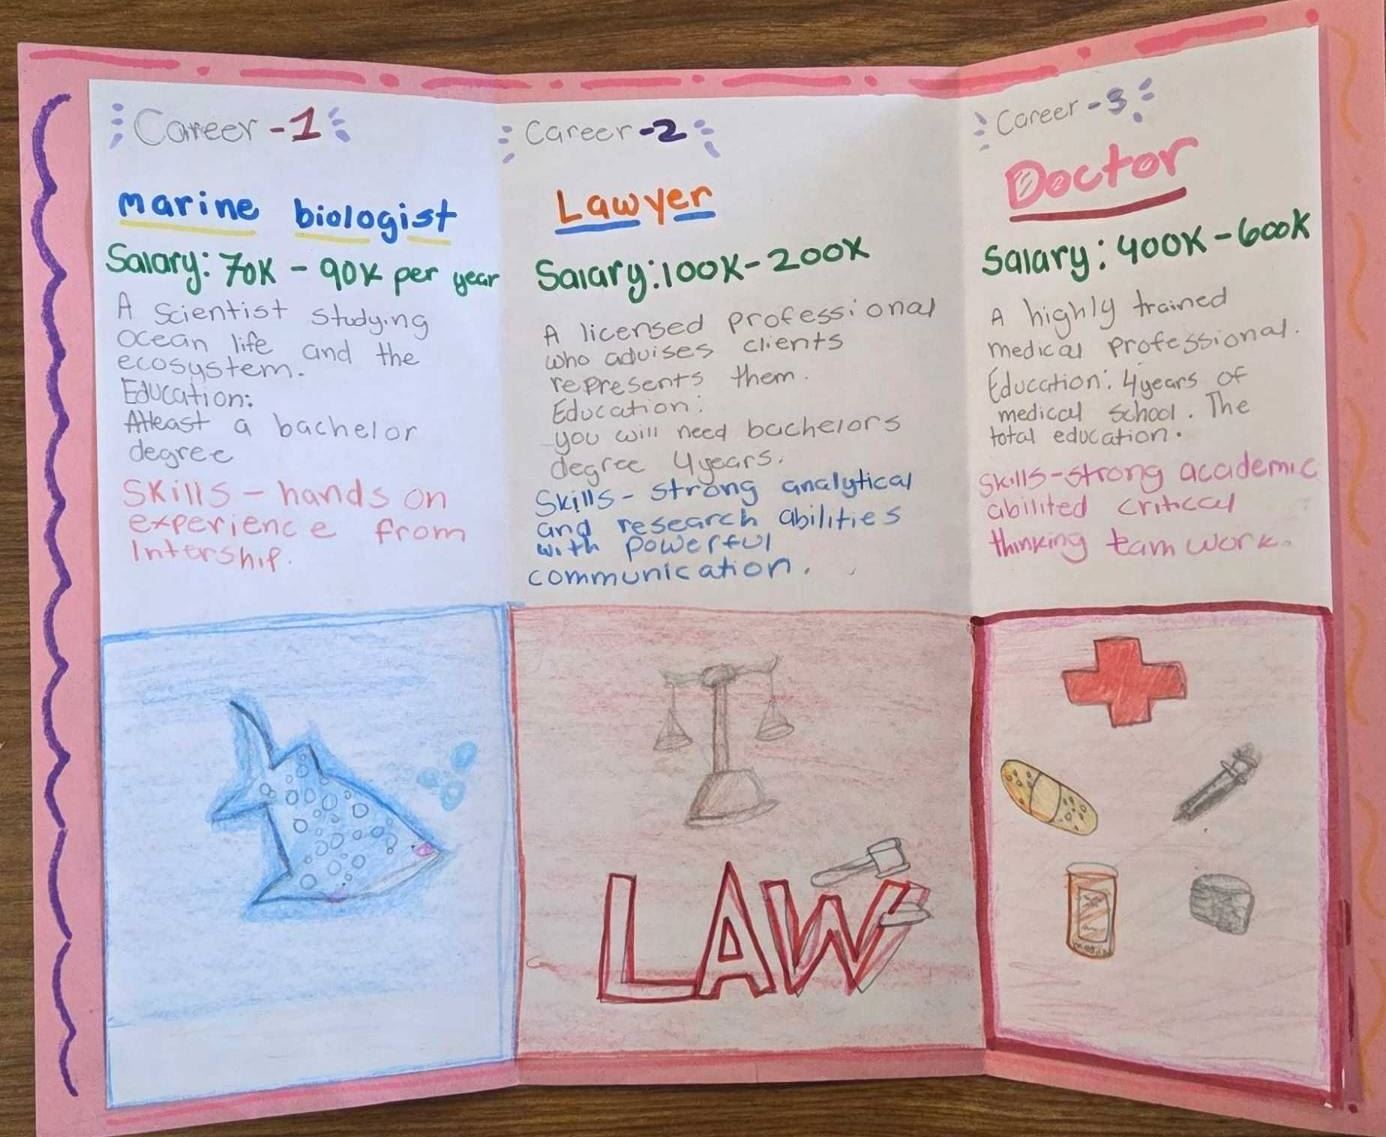 Career -1
marine biologist
Salary: 70K - 90K per year
A Scientist studying
ocean life and the
ecosystem.
Education:
Atleast a bachelor
degree
Skills - hands on
experience from
Intership.
Career -2
Lawyer
Salary: 100K - 200K
A licensed professional
who advises clients
represents them.
Education:
you will need bachelors
degree 4 years.
Skills - strong analytical
and research abilities
with powerful
communication.
LAW
Career -3
Doctor
Salary: 400K - 600K
A highly trained
medical professional.
Education: 4 years of
medical school. The
total education.
Skills - strong academic
abilited critical
thinking team work.